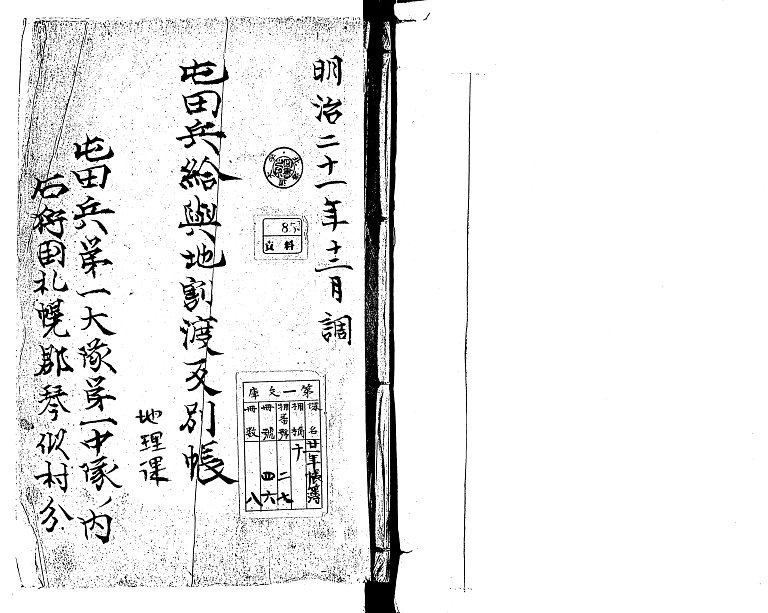 明治二十一年十二月調
屯田兵給與地割渡反別帳
地理課
屯田兵第一大隊第一中隊ノ内
石狩國札幌郡琴似村分
資料
第一文庫
課名
廿一年帳簿
類番號
二七
冊號
四六
冊数
八